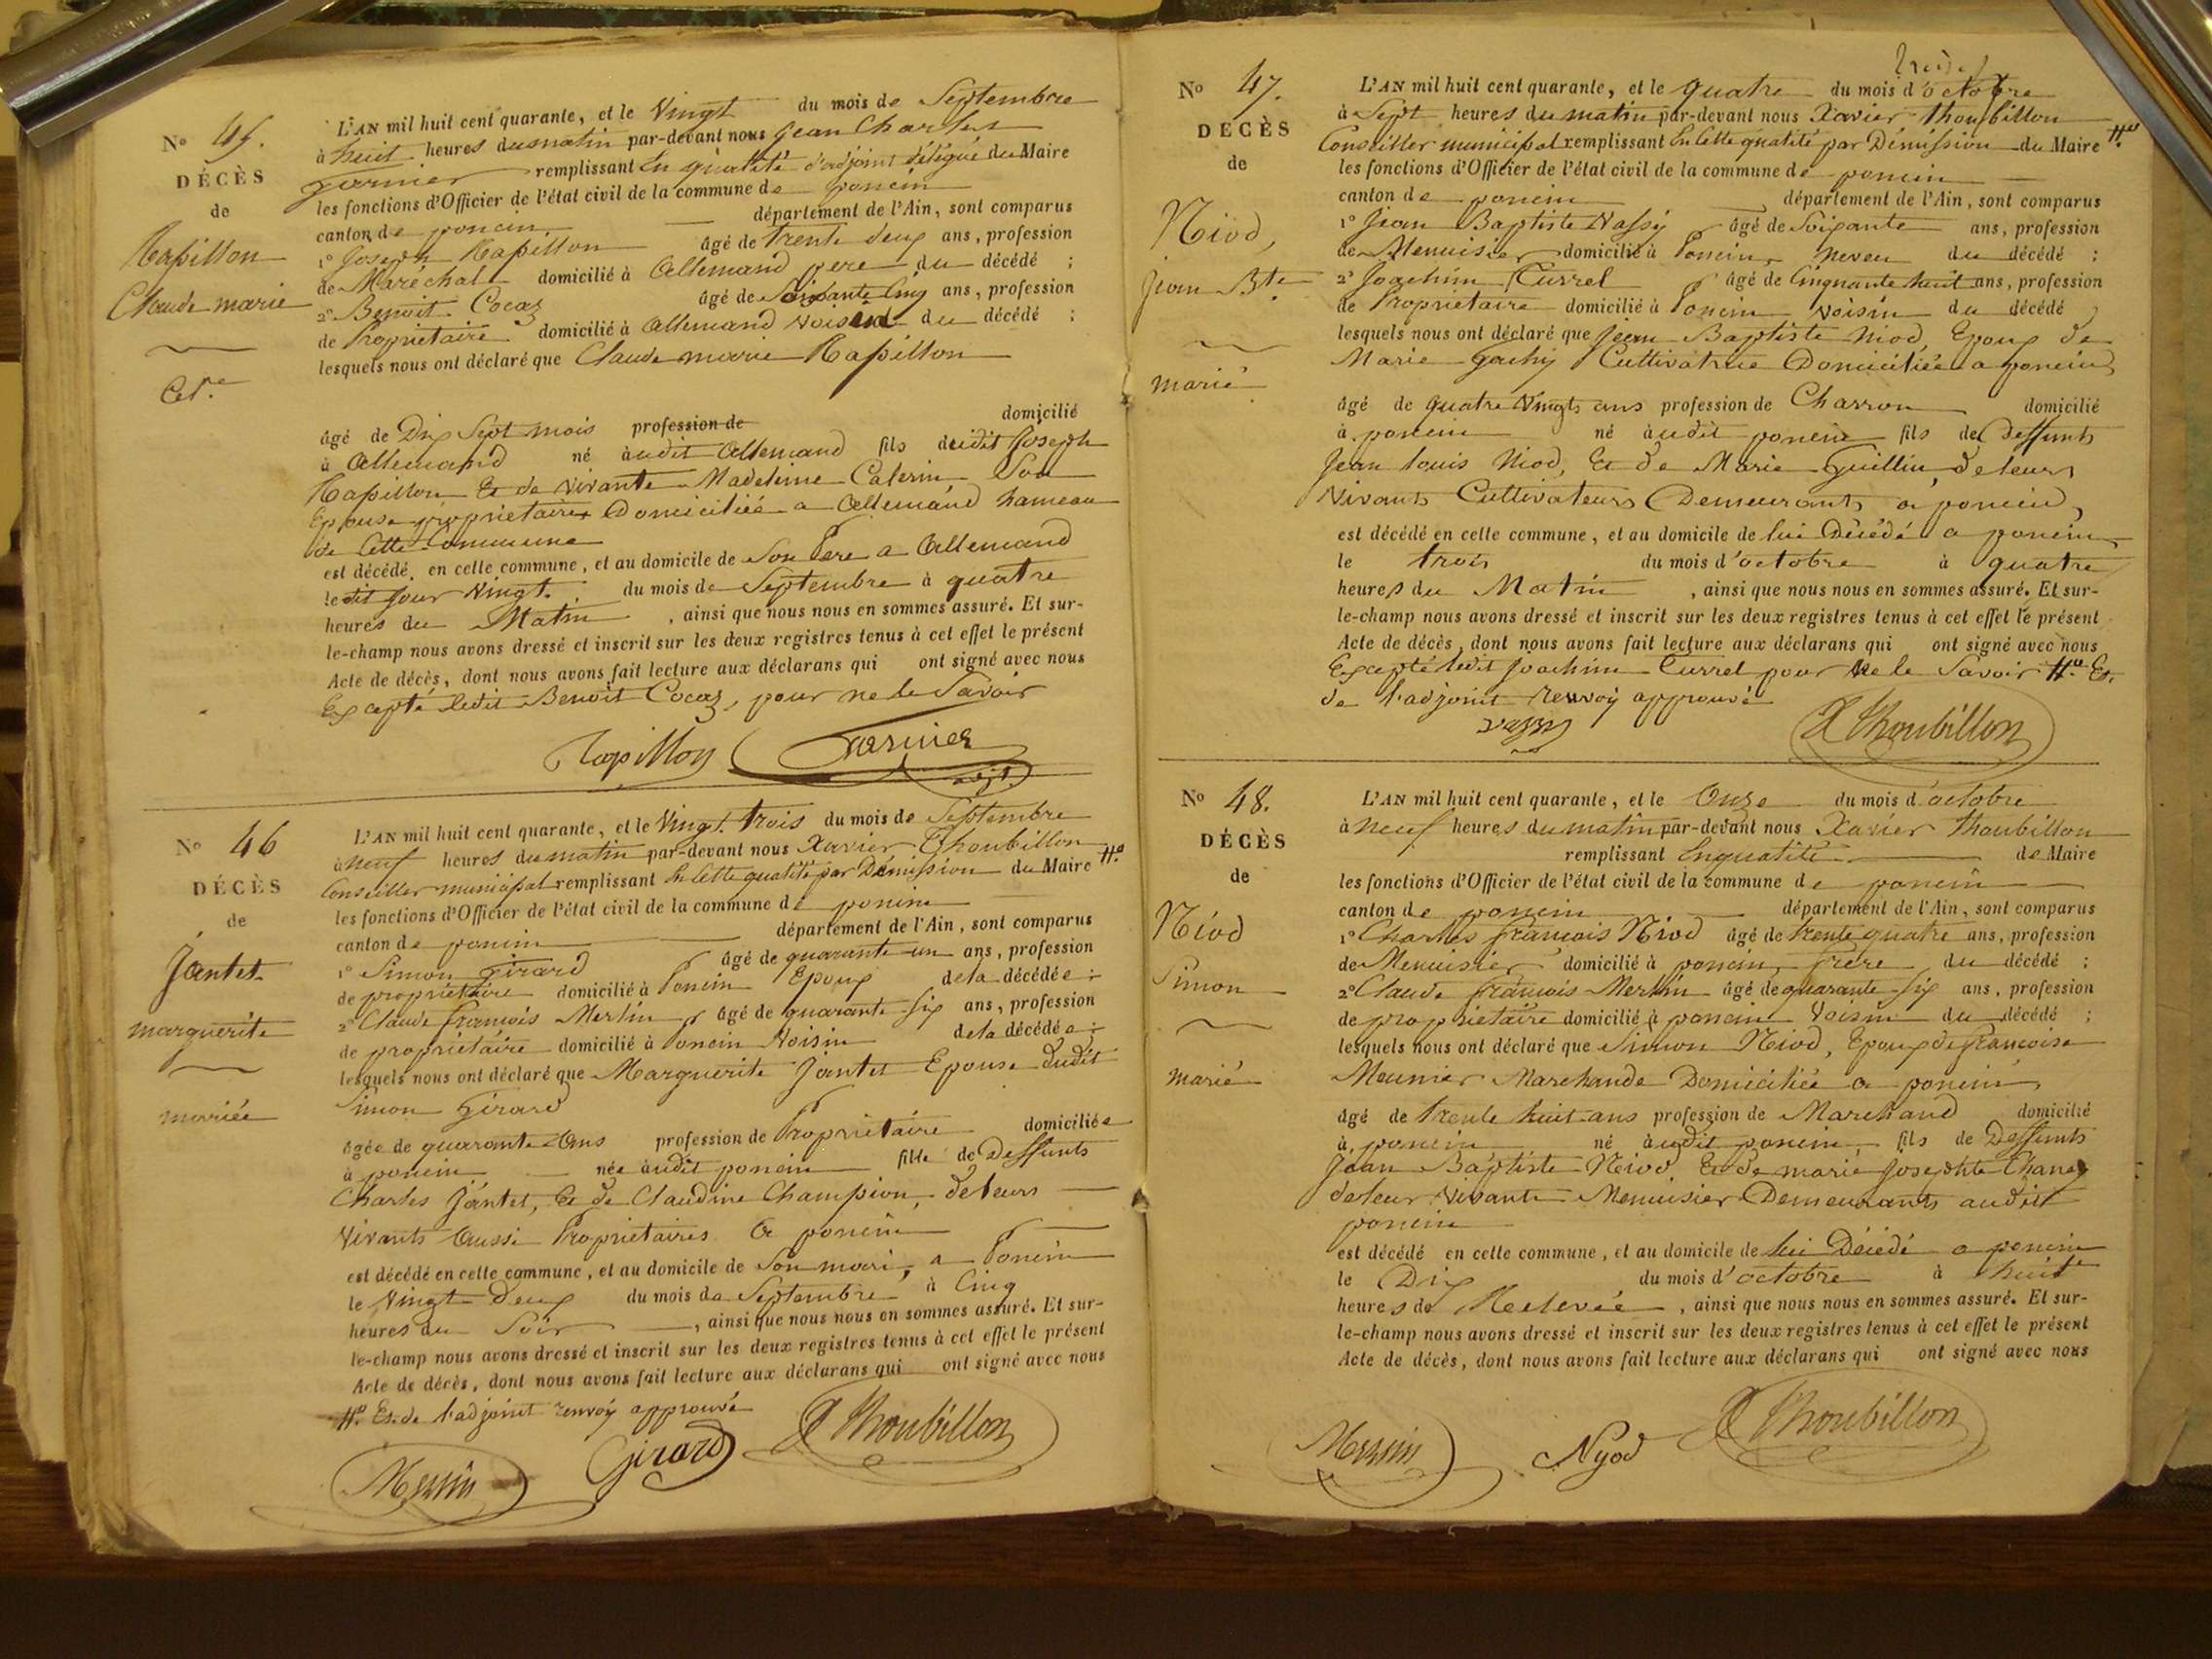 No 45.
DÉCÈS
de
Rapillon
Claude marie
Cel.re
L'AN mil huit cent quarante, et le Vingt du mois de Septembre
à huit heures du matin par-devant nous Jean Charles
Garnier remplissant En qualité d'adjoint délégué du Maire
les fonctions d'Officier de l'état civil de la commune de poncin
canton de poncin département de l'Ain, sont comparus
1o Joseph Rapillon âgé de trente deux ans, profession
de Maréchal domicilié à Allemand pere du décédé ;
2o Benoit Cocaz âgé de Soixante Cinq ans, profession
de Propriétaire domicilié à allemand Voisin du décédé ;
lesquels nous ont déclaré que Claude marie Rapillon
âgé de Dix Sept mois profession de domicilié
à Allemand né audit Allemand fils dudit Joseph
Rapillon Et de vivante Madeleine Calerin Son
Epouse propriétaires Domiciliée a Allemand hameau
de Cette Commune
est décédé en cette commune, et au domicile de Son Pere a Allemand
ledit jour Vingt. du mois de Septembre à quatre
heures du Matin , ainsi que nous nous en sommes assuré. Et sur-
le-champ nous avons dressé et inscrit sur les deux registres tenus à cet effet le présent
Acte de décès, dont nous avons fait lecture aux déclarans qui ont signé avec nous
Excepté ledit Benoit Cocaz, pour ne le Savoir
Rapillon Garnier
adjt.
No 46
DÉCÈS
de
Jantet
marguerite
mariée
L'AN mil huit cent quarante, et le Vingt trois du mois de Septembre
à neuf heures du matin par-devant nous Xavier Thoubillon
Conseiller municipal remplissant En Cette qualité par Démission du Maire #.
les fonctions d'Officier de l'état civil de la commune de poncin
canton de poncin département de l'Ain, sont comparus
1o Simon Girard âgé de quarante un ans, profession
de propriétaire domicilié à Poncin Epoux de la décédée ;
2o Claude francois Merlin âgé de quarante Six ans, profession
de propriétaire domicilié à Poncin Voisin de la décédée ;
lesquels nous ont déclaré que Marguerite Jantet Epouse dudit
Simon Girard
âgée de quarante Ans profession de Propriétaire domiciliée
à poncin née audit poncin fille de Deffunts
Charles Jantet, Et de Claudine Champion, de leurs
Vivants Aussi Propriétaires a poncin
est décédé en cette commune, et au domicile de Son mari, a Poncin
le Vingt Deux du mois de Septembre à Cinq
heures du Soir , ainsi que nous nous en sommes assuré. Et sur-
le-champ nous avons dressé et inscrit sur les deux registres tenus à cet effet le présent
Acte de décès, dont nous avons fait lecture aux déclarans qui ont signé avec nous
#. Et de l'adjoint renvoy approuvé
Merlin Girard X Thoubillon
No 47.
DÉCÈS
de
Niod,
Jean Bte
marié
L'AN mil huit cent quarante, et le quatre du mois d'octobre
à Sept heures du matin par-devant nous Xavier Thoubillon
Conseiller municipal remplissant En Cette qualité par Démission du Maire #.
les fonctions d'Officier de l'état civil de la commune de poncin
canton de poncin département de l'Ain, sont comparus
1o Jean Baptiste Vassy âgé de Soixante ans, profession
de Menuisier domicilié à Poncin, Neveu du décédé ;
2o Joachim Currel âgé de Cinquante huit ans, profession
de Propriétaire domicilié à Poncin Voisin du décédé
lesquels nous ont déclaré que Jean Baptiste Niod, Epoux de
Marie Cultivatrice Domiciliée a poncin,
âgé de quatre Vingts ans profession de Charron domicilié
à poncin né audit poncin fils de Deffunts
Jean louis Niod, Et de Marie Guillin de leurs
Vivants Cultivateurs Demeurants a poncin,
est décédé en cette commune, et au domicile de lui Décédé a poncin
le trois du mois d'octobre à quatre
heures du Matin , ainsi que nous nous en sommes assuré. Et sur-
le-champ nous avons dressé et inscrit sur les deux registres tenus à cet effet le présent
Acte de décès, dont nous avons fait lecture aux déclarans qui ont signé avec nous
Excepté ledit Joachim Currel pour Ne le Savoir #. Et
de l'adjoint Renvoy approuvé
vassy X Thoubillon
No 48.
DÉCÈS
de
Niod
Simon
marié
L'AN mil huit cent quarante, et le Onze du mois d'octobre
à neuf heures du matin par-devant nous Xavier Thoubillon
remplissant En qualité de Maire
les fonctions d'Officier de l'état civil de la commune de poncin
canton de poncin département de l'Ain, sont comparus
1o Charles francois Niod âgé de trente quatre ans, profession
de Menuisier domicilié à poncin, frere du décédé ;
2o Claude francois Merlin âgé de quarante Six ans, profession
de propriétaire domicilié à poncin Voisin du décédé ;
lesquels nous ont déclaré que Simon Niod, Epoux de francoise
Meunier Marchande Domiciliée a poncin
âgé de trente huit ans profession de Marchand domicilié
à poncin né audit poncin fils de Deffunts
Jean Baptiste Niod Et de marie Josephte Chaney
de leur Vivants Menuisier Demeurants audit
poncin
est décédé en cette commune, et au domicile de lui Décédé a poncin
le Dix du mois d'octobre à huit
heures de Relevée , ainsi que nous nous en sommes assuré. Et sur-
le-champ nous avons dressé et inscrit sur les deux registres tenus à cet effet le présent
Acte de décès, dont nous avons fait lecture aux déclarans qui ont signé avec nous
Merlin Nyod X Thoubillon